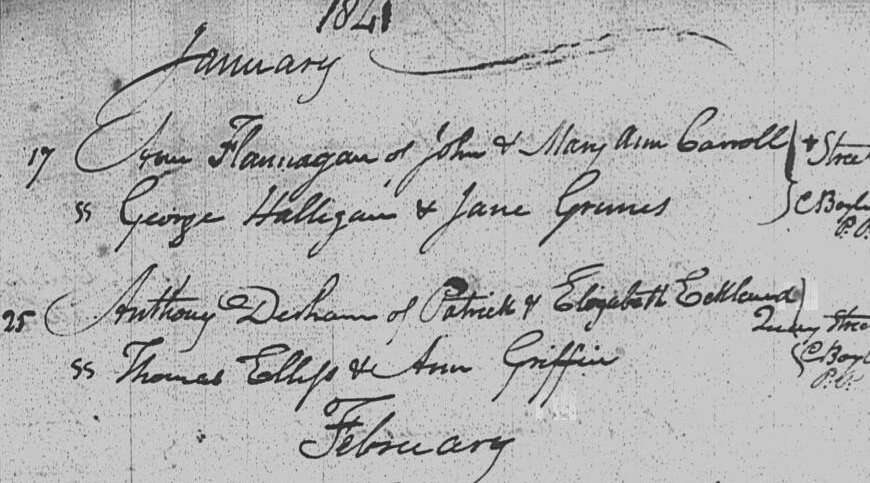 1841
January
17 Ann Flannagan of John & Mary Ann Carroll & Stree
ss George Halligan & Jane Grimes C Boyl
P.P.
25 Anthony Desham of Patrick & Elizabeth
Quay Stree
ss Thomas Ellyss & Ann Griffin C Boyl
P.P.
February